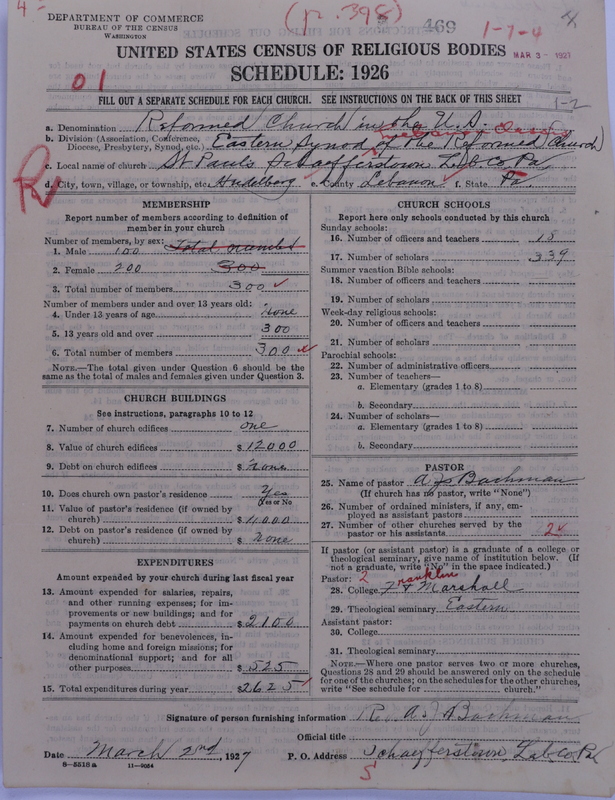 4-
(p. 398)
469
1-7-4
4
DEPARTMENT OF COMMERCE
BUREAU OF THE CENSUS
WASHINGTON
UNITED STATES CENSUS OF RELIGIOUS BODIES
MAR 3 - 1927
SCHEDULE: 1926
0 1
FILL OUT A SEPARATE SCHEDULE FOR EACH CHURCH. SEE INSTRUCTIONS ON THE BACK OF THIS SHEET
1-2
a. Denomination Reformed Church in the U.S.
b. Division (Association, Conference, Diocese, Presbytery, Synod, etc.) Eastern Synod of The Reformed Church
c. Local name of church St Pauls Schaefferstown Leb. Co. Pa
d. City, town, village, or township, etc. Heidelberg e. County Lebanon f. State Pa.
MEMBERSHIP
Report number of members according to definition of
member in your church
Number of members, by sex: Total number
1. Male 100
2. Female 200 300
3. Total number of members 300
Number of members under and over 13 years old:
4. Under 13 years of age none
5. 13 years old and over 300
6. Total number of members 300
NOTE.—The total given under Question 6 should be
same as the total of males and females given under Question 3.
CHURCH BUILDINGS
See instructions, paragraphs 10 to 12
7. Number of church edifices one
8. Value of church edifices $ 12000
9. Debt on church edifices $ none
10. Does church own pastor's residence? Yes
Yes or No
11. Value of pastor's residence (if owned by
church) $ 4000
12. Debt on pastor's residence (if owned by
church) $ none
EXPENDITURES
Amount expended by your church during last fiscal year
13. Amount expended for salaries, repairs,
and other running expenses; for im-
provements or new buildings; and for
payments on church debt $ 2100
14. Amount expended for benevolences, in-
cluding home and foreign missions; for
denominational support; and for all
other purposes $ 525
15. Total expenditures during year $ 2625
CHURCH SCHOOLS
Report here only schools conducted by this church
Sunday schools:
16. Number of officers and teachers 18
17. Number of scholars 339
Summer vacation Bible schools:
18. Number of officers and teachers
19. Number of scholars
Week-day religious schools:
20. Number of officers and teachers
21. Number of scholars
Parochial schools:
22. Number of administrative officers
23. Number of teachers—
a. Elementary (grades 1 to 8)
b. Secondary
24. Number of scholars—
a. Elementary (grades 1 to 8)
b. Secondary
PASTOR
25. Name of pastor A J Bachman
(If church has no pastor, write "None")
26. Number of ordained ministers, if any, em-
ployed as assistant pastors
27. Number of other churches served by the
pastor or his assistants 2
If pastor (or assistant pastor) is a graduate of a college or
theological seminary, give name of institution below. (If
not a graduate, write "No" in the space indicated.)
Pastor: 2 ranklin
28. College F & Marshall
29. Theological seminary Eastern
Assistant pastor:
30. College
31. Theological seminary
NOTE.—Where one pastor serves two or more churches,
Questions 28 and 29 should be answered only on the schedule
for one of the churches; on the schedules for the other churches,
write "See schedule for church."
Signature of person furnishing information R. A. J. Bachman
Official title
Date March 2nd, 1927 P. O. Address Schaefferstown, Leb. Co. Pa
8—5518 a 11—9024
5